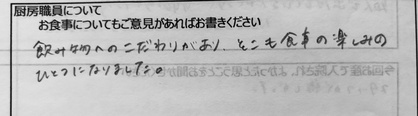 厨房職員について
お食事についてもご意見があればお書きください
飲み物へのこだわりがあり、とても食事の楽しみの
ひとつになりました。